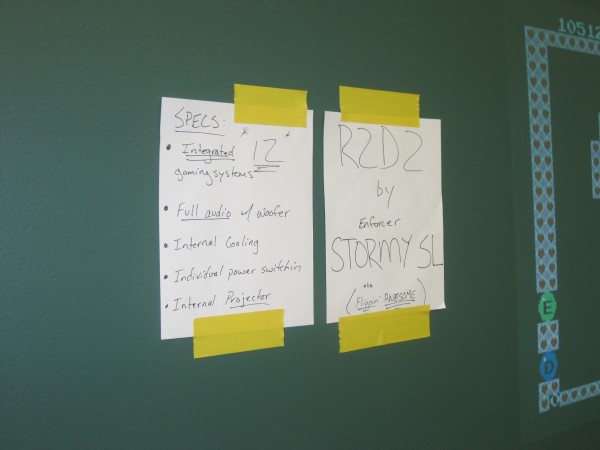 SPECS:
* 12 *
• Integrated
gaming systems
• Full audio w/ woofer
• Internal Cooling
• Individual power switchin
• Internal Projector
R2D2
by
Enforcer
STORMY SL
aka
(Flippin' AWESOME)
10512
E
D